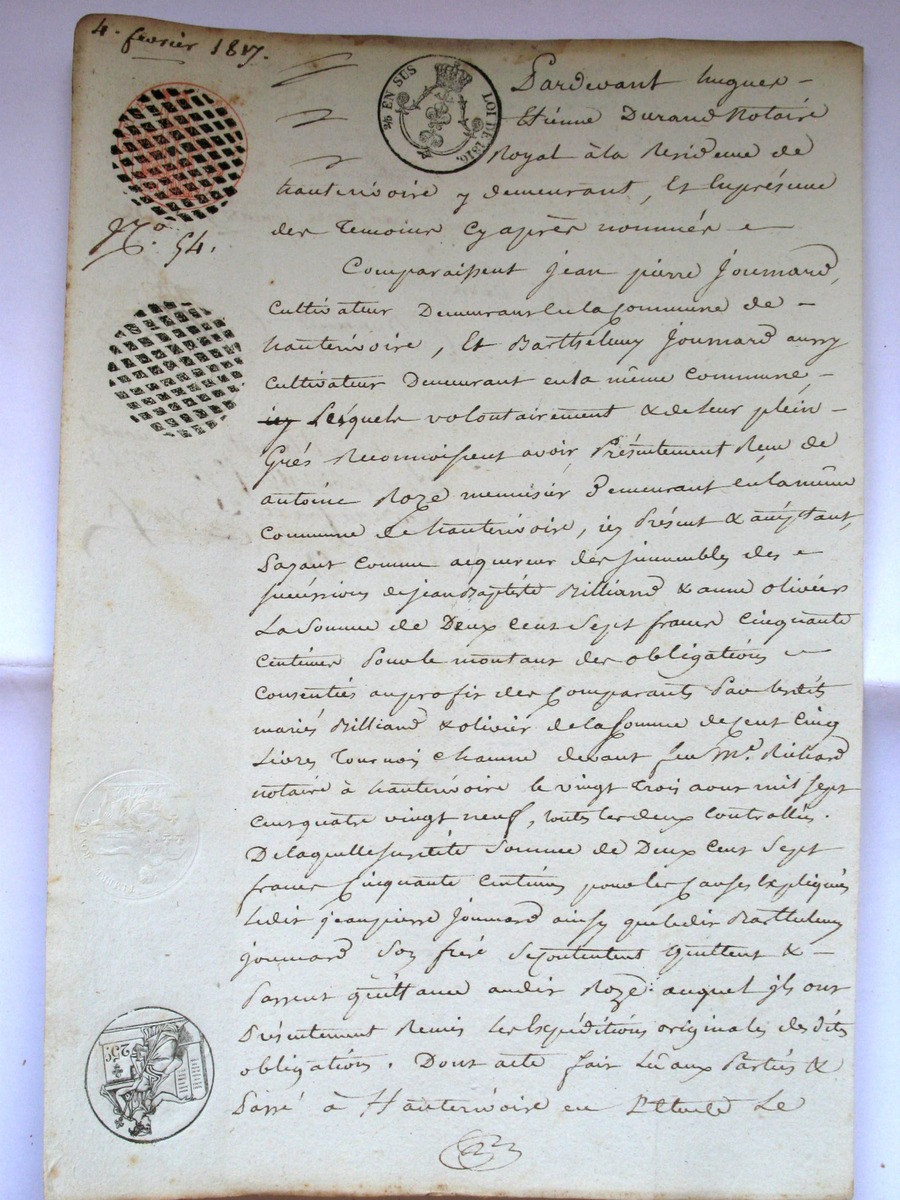 4. fevrier 1817.
% EN SUS LOI DE 1816.
Pardevant hugues -
Etienne Durand Notaire
Royal à la Residence de
hauterivoire y demeurant, Et En présence
des Temoins Cy après nommés
Nº. 54.
Comparaissent jean pierre Joumard,
Cultivateur Demeurant En la Commune de -
hauterivoire, Et Barthelemy Joumard aussy
Cultivateur Demeurant en la même Commune -
Lesquels volontairement & de leur plein -
Grés Reconnoissent avoir Présentement Reçu de
antoine Roze menuisier Demeurant en la même
Commune de hauterivoire, icy Présent & acceptant,
Payant Comme acquereur des jmmeubles des
successions de jean Baptiste Billiand & anne olivier
La Somme de Deux Cent Sept francs Cinquante
Centimes Pour le montant des obligations
Consenties au profit des Comparants Par lesdits
mariés Billiand & olivier de la Somme de Cent Cinq
Livres Tournois Chacune devant feu Mr. Richard
notaire à hauterivoire le vingt Trois aout mil sept
Cent quatre vingt neuf, toutes les deux Controllés.
De laquelle susdite Somme de Deux Cent Sept
francs Cinquante Centimes pour les Causes Expliquées
Ledit jean pierre Joumard ainsy que ledit Barthelemy
Joumard Son frere Se Contentent Quittent & -
Passent quittance audit Roze. auquel jls ont
Présentement Remis les Expéditions originales desdites
obligations. Dont acte fait Lû aux Parties &
Passé à Hauterivoire en L'Etude Le
25c